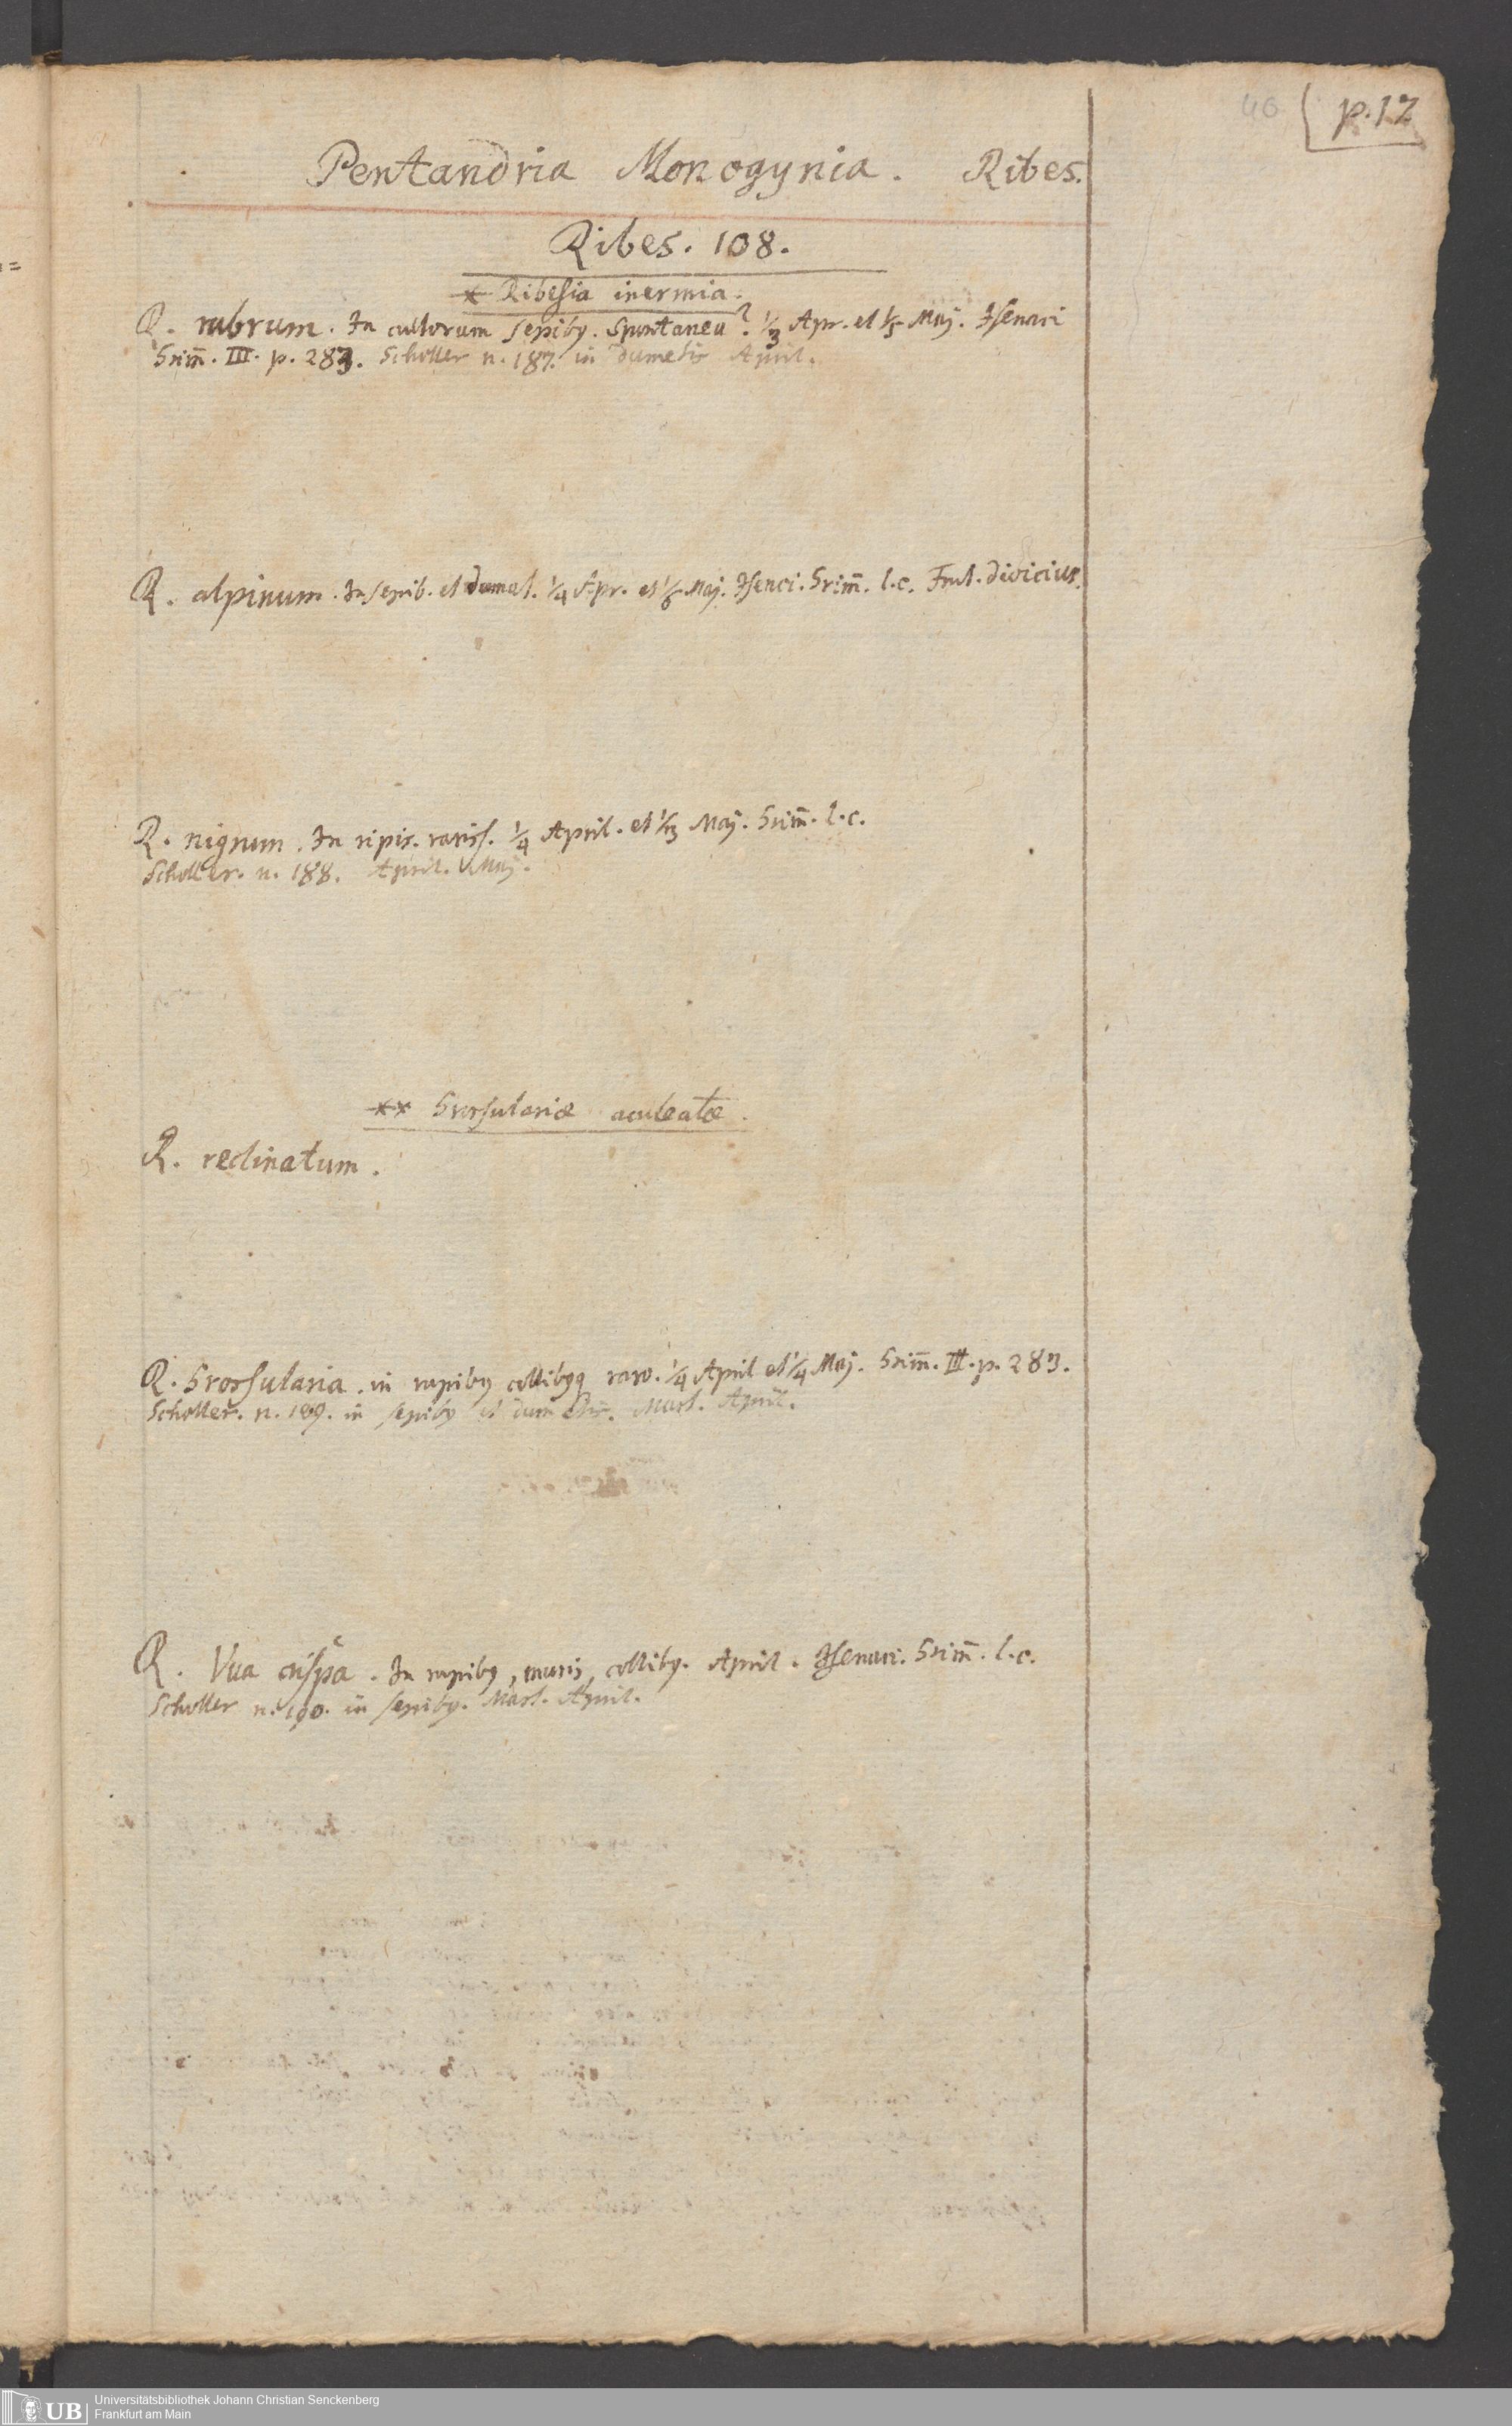 40 p. 12
Pentandria Monogynia. Ribes.
Ribes. 108.
* Ribesia inermia.
R. rubrum. In cultorum sepiby. Spontanea? 1/3 Apr. et 1/5 Maj. Isenaci
Grim̄. III. p. 283. Scholler n. 187. in dumetis April.
R. alpinum. In sepib. et dumet. 1/4 Apr. et 1/6 Maj. Isenci. Grim̄. l.c. Frut. dioicius.
R. nigrum. In ripis. rariss. 1/4 April. et 1/3 Maj. Grim̄. l.c.
Scholler. n. 188. April. Maj.
** Grossulariæ aculeatæ.
R. reclinatum.
R. Grossularia. in rupiby collibyq raro. 1/4 April et 1/4 Maj. Grim̄. III. p. 283.
Scholler. n. 189. in sepiby et dumetis. Mart. April.
R. Vua crispa. In rupiby, muris, colliby. April. Isenaci. Grim̄. l.c.
Scholler n. 190. in sepiby. Mart. April.
UB Universitätsbibliothek Johann Christian Senckenberg
Frankfurt am Main